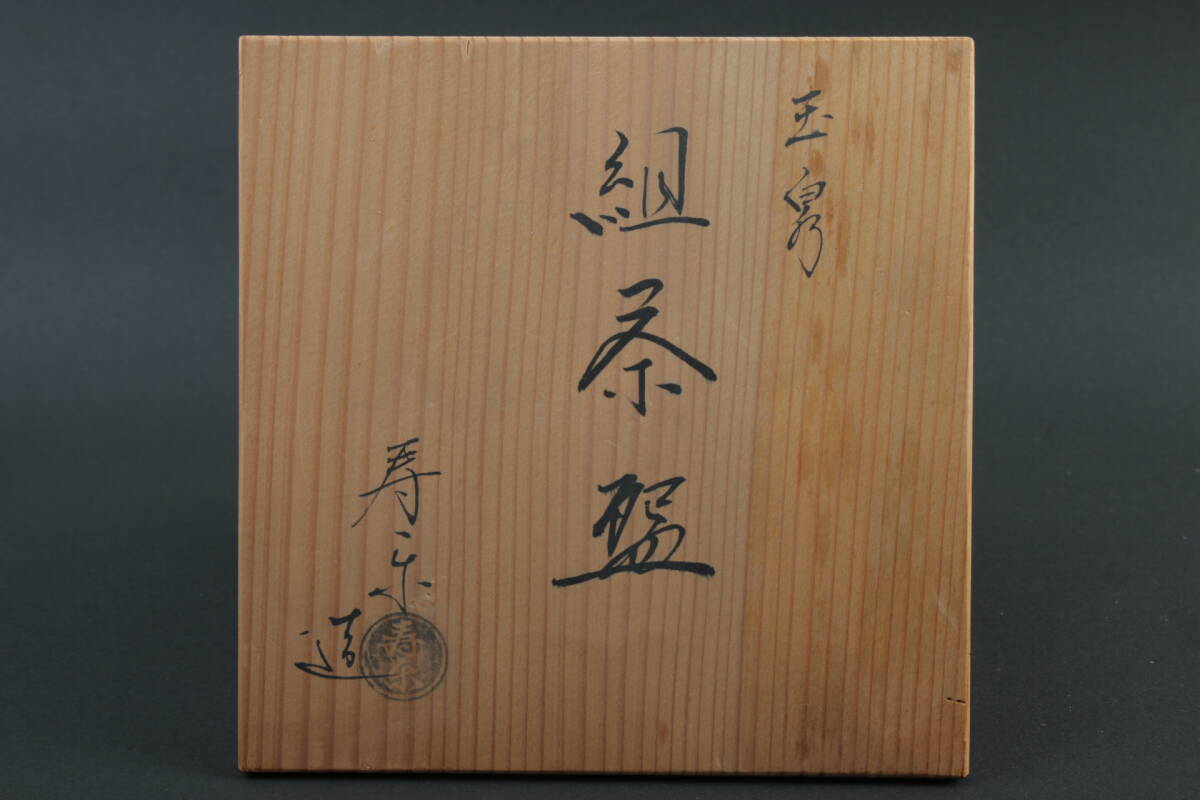 玉泉
組茶盌
寿楽
造
寿楽